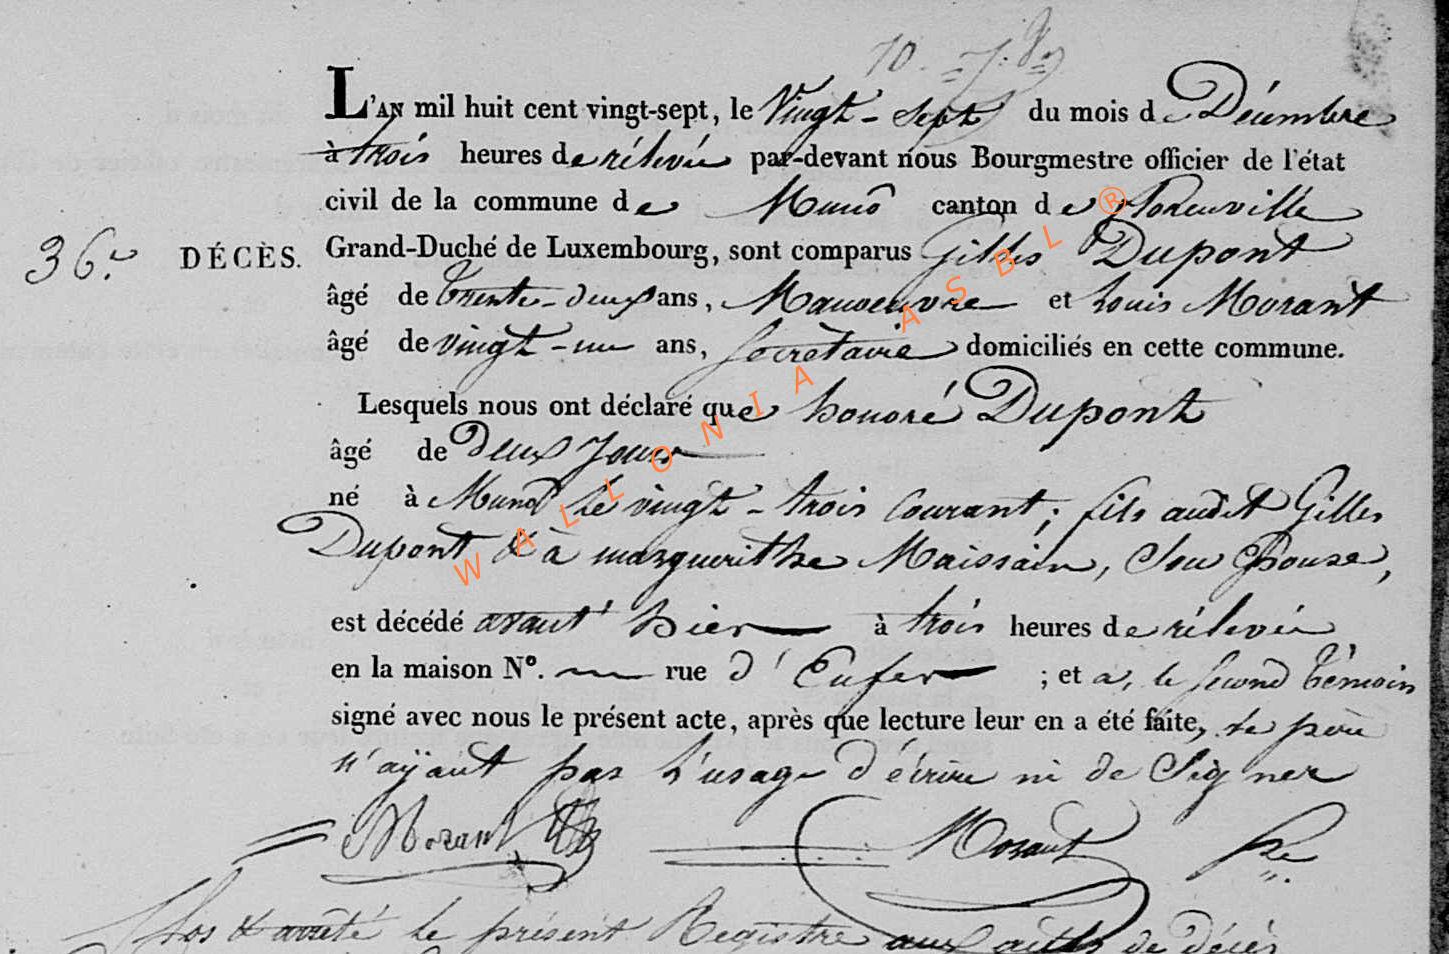 10. 7.bre
L'AN mil huit cent vingt-sept, le Vingt-Sept du mois de Décembre
à trois heures de rélevée par-devant nous Bourgmestre officier de l'état
civil de la commune de Muno canton de Florenville
Grand-Duché de Luxembourg, sont comparus Gilles Dupont
36.e DÉCÈS.
âgé de trente-deux ans, Manoeuvre et Louis Morant
âgé de vingt-un ans, Sécrétaire domiciliés en cette commune.
Lesquels nous ont déclaré que honoré Dupont
âgé de Deux Jours
né à Muno Le vingt-trois Courant; fils audit Gilles
Dupont & à marguerithe Maissain, Son Epouse,
est décédé avant hier à trois heures de rélevée
en la maison N°. rue d'Enfer ; et a, le second témoin
signé avec nous le présent acte, après que lecture leur en a été faite, le père
n'ayant pas L'usage d'écrire ni de Signer
Morant
Morant
Clos & arrêté Le présent Registre aux actes de décès
WALLONIA ASBL ®